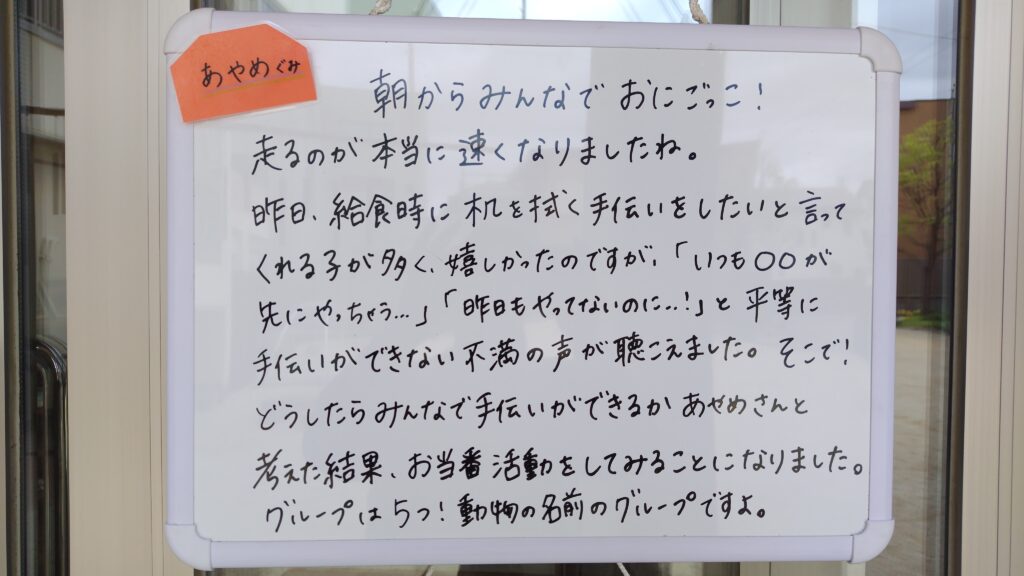 あやめぐみ
朝からみんなで おにごっこ！
走るのが本当に速くなりましたね。
昨日、給食時に机を拭く手伝いをしたいと言って
くれる子が多く、嬉しかったのですが、「いつも〇〇が
先にやっちゃう…」「昨日もやってないのに…！」と平等に
手伝いができない不満の声が聴こえました。そこで！
どうしたらみんなで手伝いができるか あやめさんと
考えた結果、お当番活動をしてみることになりました。
グループは5つ！動物の名前のグループですよ。